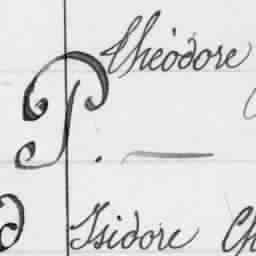 Théodore
P. —
Isidore Ch